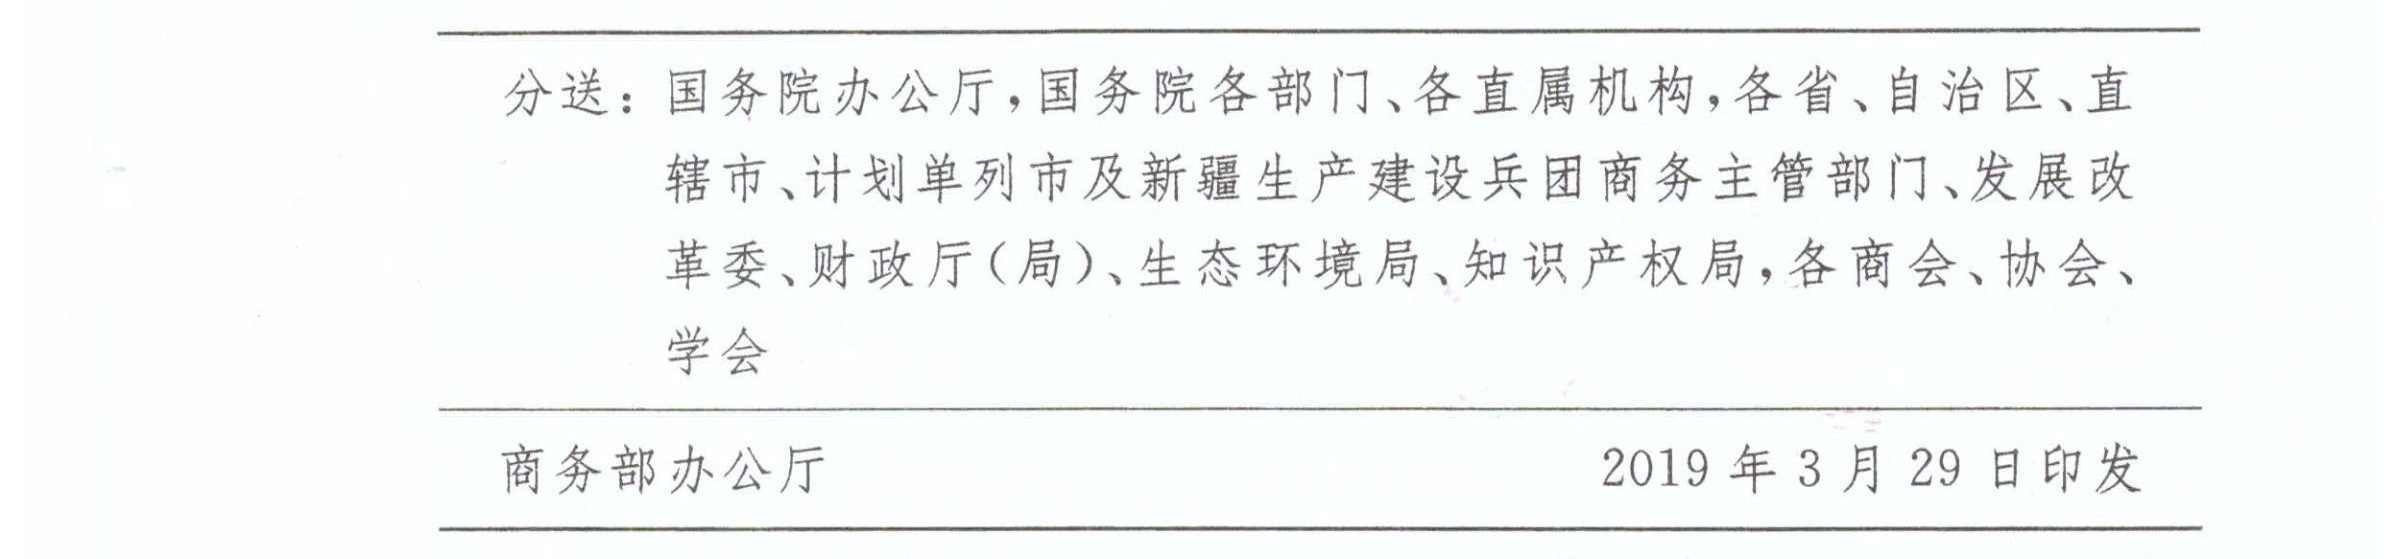 分送：国务院办公厅，国务院各部门、各直属机构，各省、自治区、直
辖市、计划单列市及新疆生产建设兵团商务主管部门、发展改
革委、财政厅（局）、生态环境局、知识产权局，各商会、协会、
学会
商务部办公厅 2019 年 3 月 29 日印发